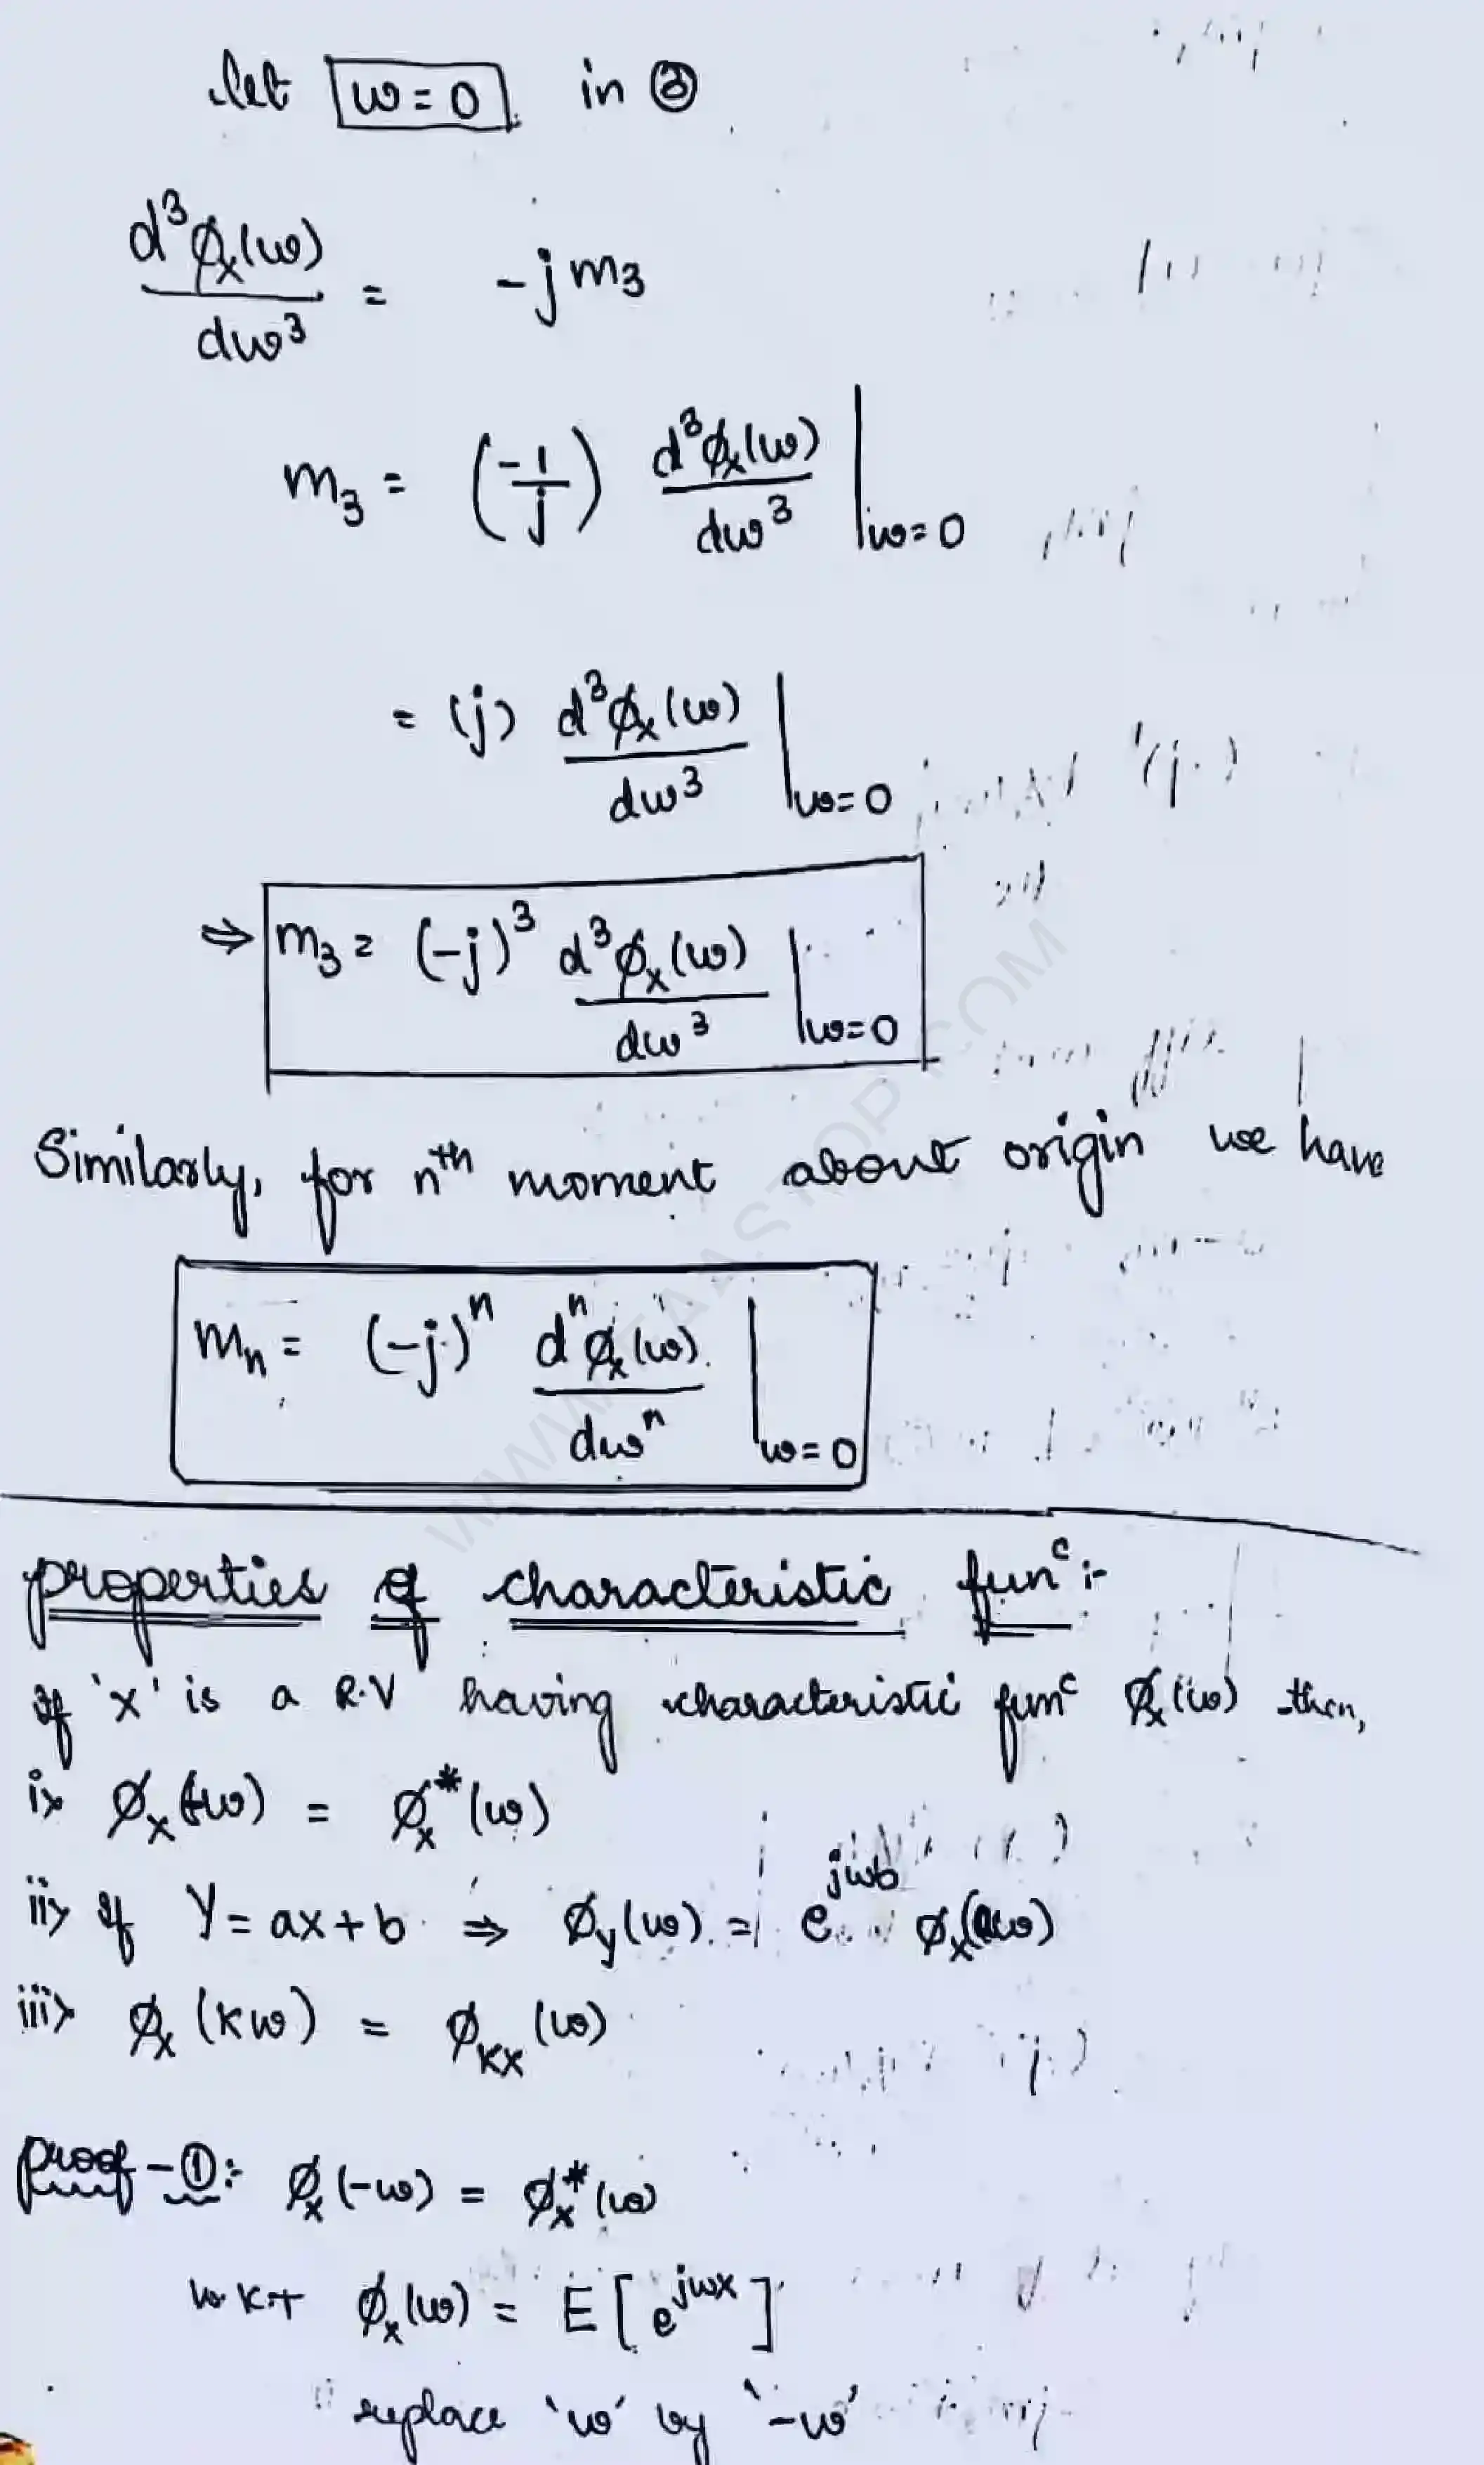 let w=0 in ③
d³φₓ(w)/dw³ = -j m₃
m₃ = (-1/j) d³φₓ(w)/dw³ |w=0
= (j) d³φₓ(w)/dw³ |w=0
⇒ m₃ = (-j)³ d³φₓ(w)/dw³ |w=0
Similarly, for nᵗʰ moment about origin we have
mₙ = (-j)ⁿ dⁿφₓ(w)/dwⁿ |w=0
properties of characteristic funᶜ :-
if 'x' is a R.V having characteristic funᶜ φₓ(w) then,
i> φₓ(-w) = φₓ*(w)
ii> if Y = ax+b ⇒ φy(w) = e^jwb φₓ(aw)
iii> φₓ(kw) = φkx(w)
proof-①:- φₓ(-w) = φₓ*(w)
w.k.t φₓ(w) = E[e^jwx]
replace 'w' by '-w'